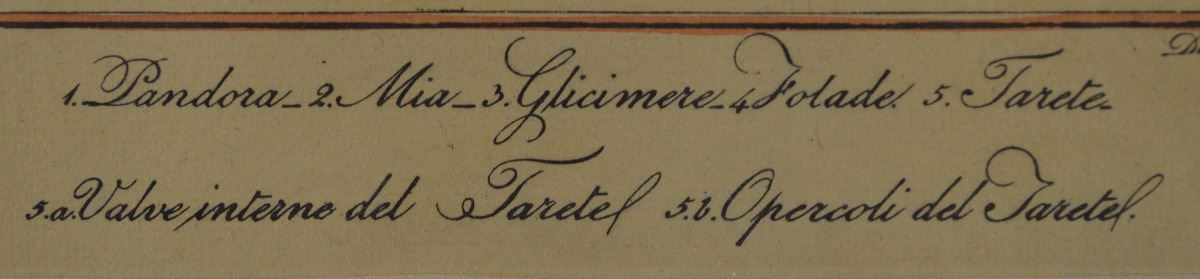 1. Pandora_ 2. Mia_ 3. Glicimere_ 4 Folade. 5. Tarete_
5.a. Valve interne del Taretel 5.b. Opercoli del Taretel.